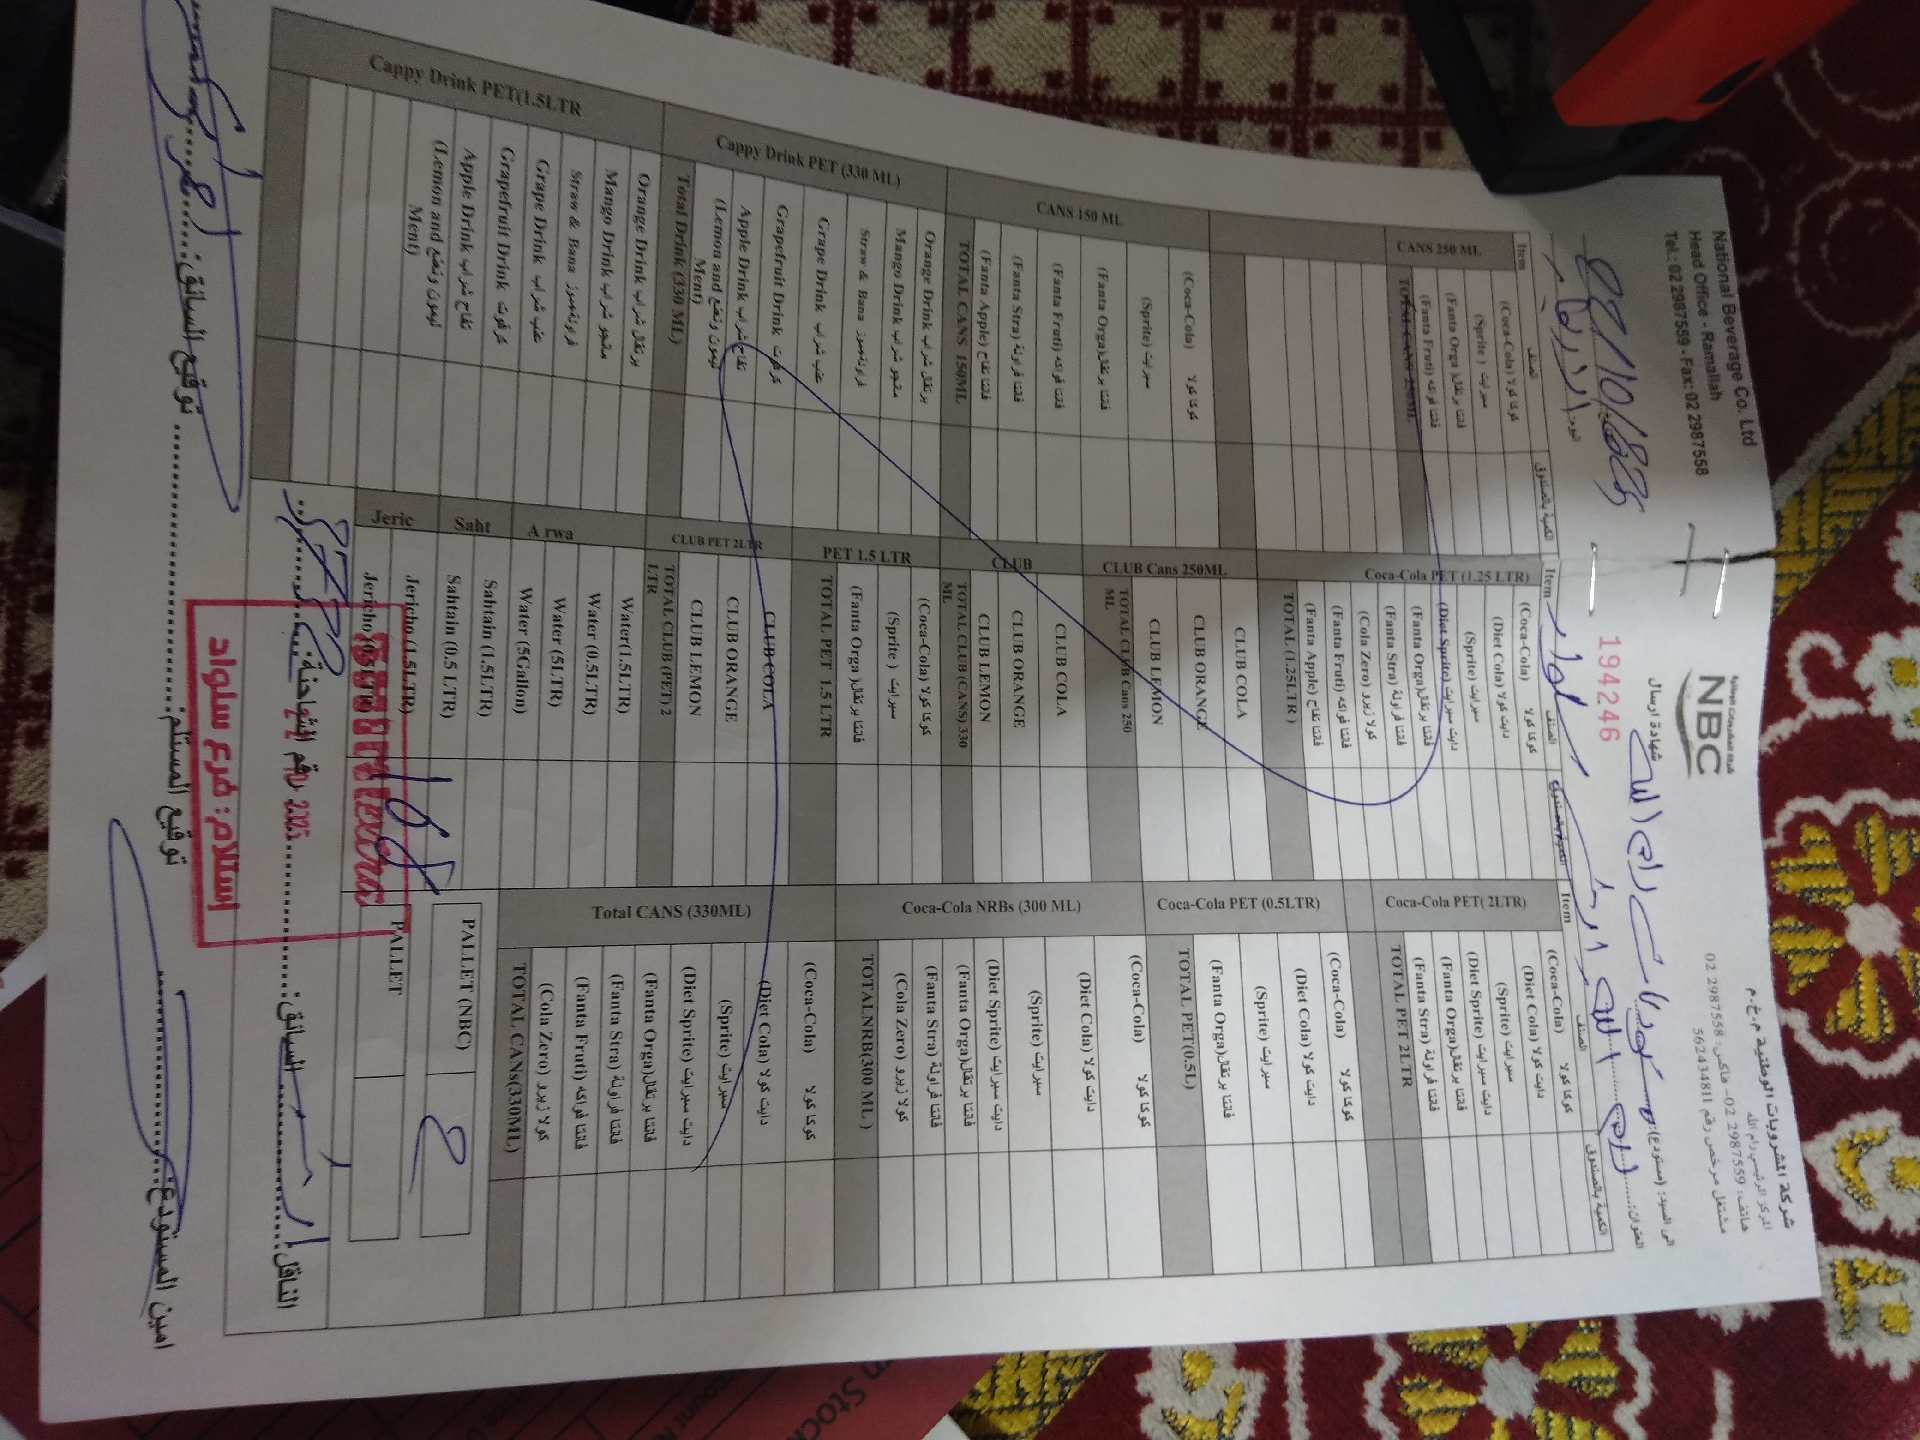 National Beverage Co. Ltd
Head Office - Ramallah
Tel.: 02 2987559 - Fax: 02 2987558
NBC
شركة المشروبات الوطنية م.خ.م
المركز الرئيسي رام الله
هاتف: 2987559 02- فاكس: 2987558 02
مشتغل مرخص رقم 562434811
شهادة ارسال
194246
الى السيد: (مستودع):
العنوان:
اليوم: الاربعاء
Item الصنف الكمية بالصندوق
CANS 250 ML
(Coca-Cola) كوكا كولا
(Sprite) سبرايت
(Fanta Orga) فانتا برتقال
(Fanta Fruti) فانتا فواكه
TOTAL CANS 250ML
CANS 150 ML
(Coca-Cola) كوكا كولا
(Sprite) سبرايت
(Fanta Orga) فانتا برتقال
(Fanta Fruti) فانتا فواكه
(Fanta Stra) فانتا فراولة
(Fanta Apple) فانتا تفاح
TOTAL CANS 150ML
Cappy Drink PET (330 ML)
Orange Drink برتقال شراب
Mango Drink مانجو شراب
Straw & Bana فراولة+موز
Grape Drink عنب شراب
Grapefruit Drink كرفوت
Apple Drink تفاح شراب
(Lemon and ليمون ونعنع
Ment)
Total Drink (330 ML)
Cappy Drink PET(1.5LTR
Orange Drink برتقال شراب
Mango Drink مانجو شراب
Straw & Bana فراولة+موز
Grape Drink عنب شراب
Grapefruit Drink كرفوت
Apple Drink تفاح شراب
(Lemon and ليمون ونعنع
Ment)
Item الصنف الكمية بالصندوق
Coca-Cola PET (1.25 LTR)
(Coca-Cola) كوكا كولا
(Diet Cola) دايت كولا
(Sprite) سبرايت
(Diet Sprite) دايت سبرايت
(Fanta Orga) فانتا برتقال
(Fanta Stra) فانتا فراولة
(Cola Zero) كولا زيرو
(Fanta Fruti) فانتا فواكه
(Fanta Apple) فانتا تفاح
TOTAL (1.25LTR)
CLUB Cans 250ML
CLUB COLA
CLUB ORANGE
CLUB LEMON
TOTAL CLUB Cans 250
ML
CLUB
CLUB COLA
CLUB ORANGE
CLUB LEMON
TOTAL CLUB (CANS) 330
ML
PET 1.5 LTR
(Coca-Cola) كوكا كولا
(Sprite) سبرايت
(Fanta Orga) فانتا برتقال
TOTAL PET 1.5 LTR
CLUB PET 2LTR
CLUB COLA
CLUB ORANGE
CLUB LEMON
TOTAL CLUB (PET) 2
LTR
A rwa
Water(1.5LTR)
Water (0.5LTR)
Water (5LTR)
Water (5Gallon)
Saht
Sahtain (1.5LTR)
Sahtain (0.5 LTR)
Jeric
Jericho (1.5LTR)
Jericho (0.5LTR)
Item الصنف الكمية بالصندوق
Coca-Cola PET( 2LTR)
(Coca-Cola) كوكا كولا
(Diet Cola) دايت كولا
(Sprite) سبرايت
(Diet Sprite) دايت سبرايت
(Fanta Orga) فانتا برتقال
(Fanta Stra) فانتا فراولة
TOTAL PET 2LTR
Coca-Cola PET (0.5LTR)
(Coca-Cola) كوكا كولا
(Diet Cola) دايت كولا
(Sprite) سبرايت
(Fanta Orga) فانتا برتقال
TOTAL PET(0.5L)
Coca-Cola NRBs (300 ML)
(Coca-Cola) كوكا كولا
(Diet Cola) دايت كولا
(Sprite) سبرايت
(Diet Sprite) دايت سبرايت
(Fanta Orga) فانتا برتقال
(Fanta Stra) فانتا فراولة
(Cola Zero) كولا زيرو
TOTALNRB(300 ML)
Total CANS (330ML)
(Coca-Cola) كوكا كولا
(Diet Cola) دايت كولا
(Sprite) سبرايت
(Diet Sprite) دايت سبرايت
(Fanta Orga) فانتا برتقال
(Fanta Stra) فانتا فراولة
(Fanta Fruti) فانتا فواكه
(Cola Zero) كولا زيرو
TOTAL CANs(330ML)
PALLET (NBC)
PALLET
الناقل: السائق: رقم الشاحنة:
2025
استلام: فرع سلواد
امين المستودع: توقيع المستلم: توقيع السائق: